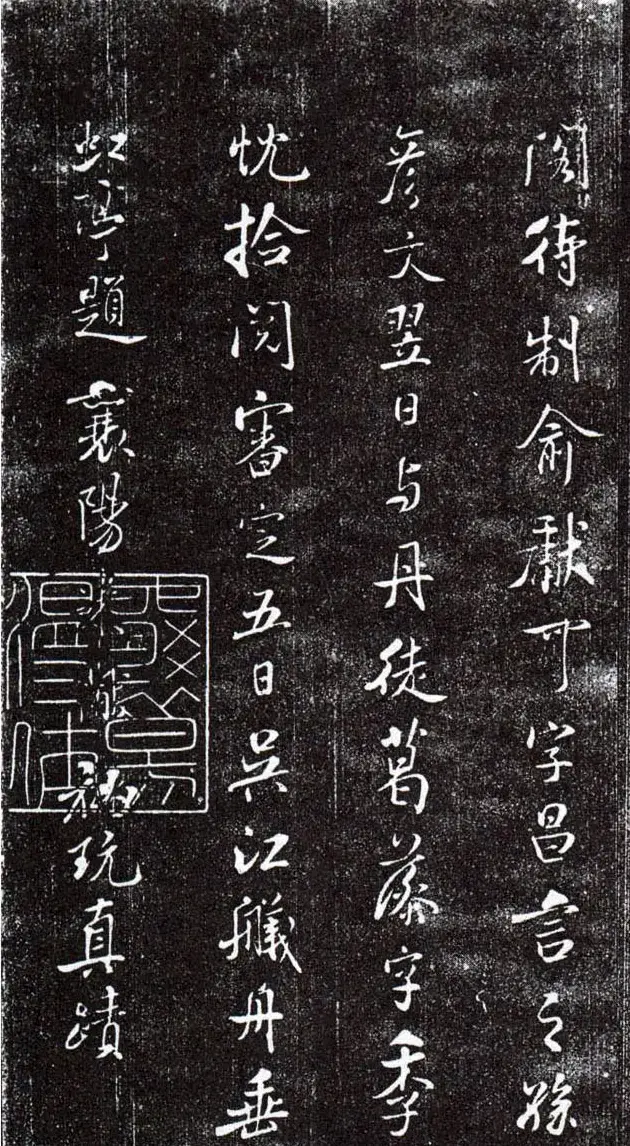 閣待制俞獻可字昌言之孫
彥文翌日与丹徒葛藻字季
忱拾閱審定五日吳江艤舟垂
虹亭題 襄陽米黻 祕玩真蹟